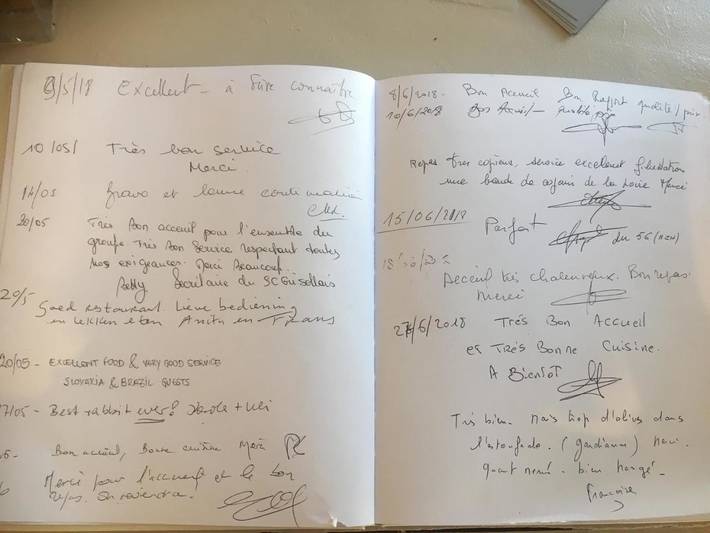 9/5/18 Excellent - à faire connaître
10/05/ Très bon service
Merci
14/05 Bravo et bonne continuation
20/05 Très bon acceuil pour l'ensemble du
groupe. Très bon service respectant toutes
nos exigeances. Merci Beaucoup.
Secrétaire du
20/5 Goed restaurant. Lieve bediening
en lekker eten Anita en Frans
20/05 - EXCELLENT FOOD & VERY GOOD SERVICE
SLOVAKIA & BRAZIL GUESTS
7/05 - Best rabbit ever!
Bon accueil, Bonne cuisine Merci
Merci pour l'accueil et le bon
repas. On reviendra.
8/6/2018 - Bon Acceuil Bon Rapport qualité/prix
10/6/2018 Bon Accueil - Qualité
Repas très copieux, service excellent
une bande de copains de la Loire Merci
15/06/2018 Parfait
du 56
Acceuil très chaleureux. Bon repas.
Merci
27/6/2018 Très Bon Accueil
et Très Bonne Cuisine.
A Bientôt
Très bien. Mais trop d'olives dans
l'estoufade. (gardianne)
quant même. bien mangé.
Françoise